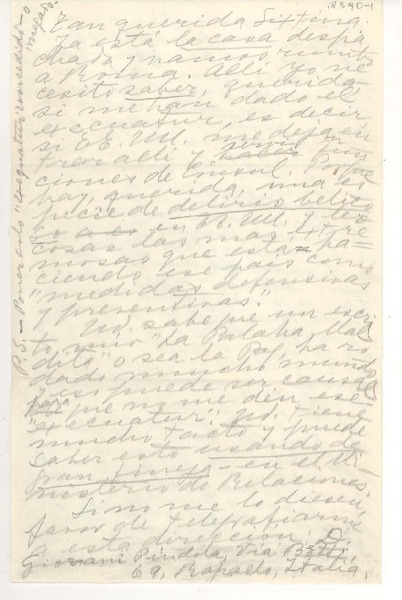 18390-1
Tan querida Sixtina.
Ya está la casa despa-
chada y vamos rumbo
a Roma. Allí yo ne-
cesito saber, querida,
si me han dado el
execuatur, es decir
si EE. UU. me deja en-
trar allí y fun-
ciones de consul. Porque
hay, querida, una es-
pecie de delirio bélico
en EE. UU. y leo
cosas las mas extre-
mosas que está ha-
ciendo ese país como
"medidas defensivas
y preventivas."
Ud. sabe que un escri-
to mio "La Palabra Mal-
dita" o sea la Paz, ha ro-
dado mucho mundo
y eso puede ser causa
para que no me den ese
execuatur. Ud. tiene
mucho tacto y puede
saber esto usando de
gran fineza - en el Mi-
nisterio de Relaciones.
Si no me lo diesen,
favor de telegrafiarme
a esta dirección,
Giovani Pindola, Via Betti,
69, Rapallo, Italia.
P.S. - Poner solo "exequatur concedido - o
negado.